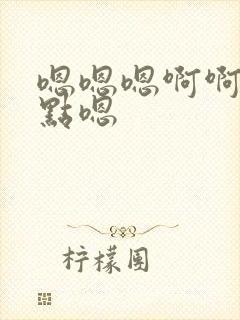 嗯嗯嗯啊啊
點嗯
柠檬围